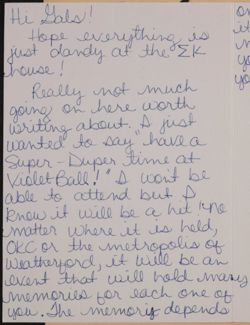 Hi Gals!
Hope everything is
just dandy at the ΣK
house!
Really not much
going on here worth
writing about. I just
wanted to say "have a
Super-Duper time at
Violet Ball!" I won't be
able to attend but I
know it will be a hit no
matter where it is held,
OKC or the metropolis of
Weatherford, it will be an
event that will hold many
memories for each one of
you. The memory depends